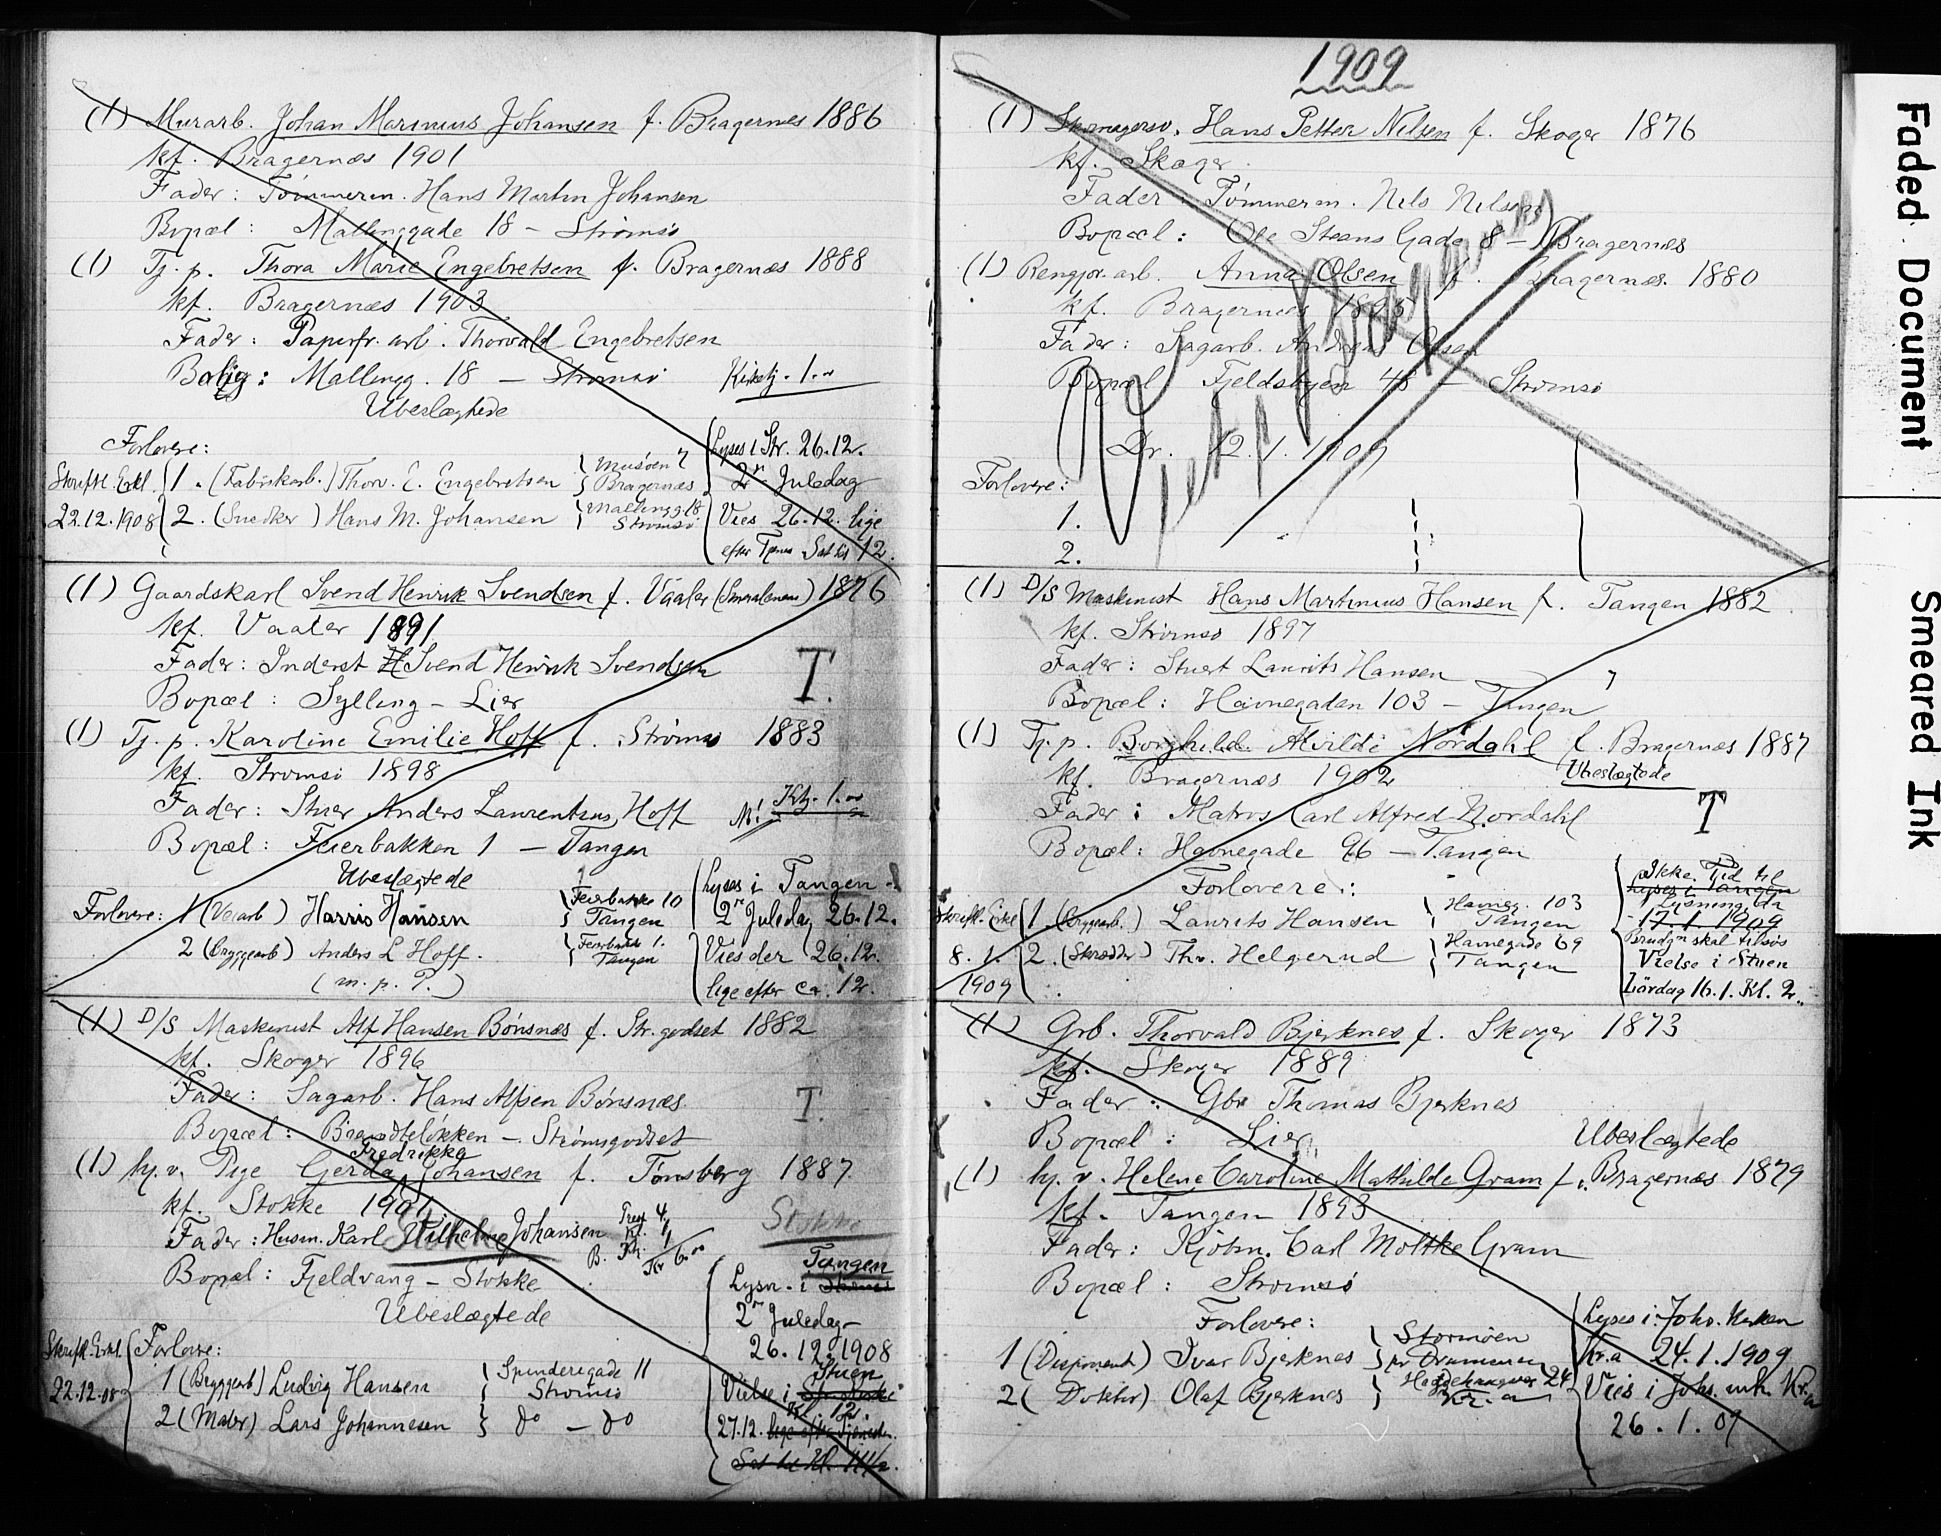 (1) Murarb. Johan Marinius Johansen f. Bragernes 1886
kf. Bragernæs 1901
Fader: Tømmerm. Hans Martin Johansen
Bopæl: Mallinggade 18 – Strømsø
(1) Tj. p. Thora Marie Engebretsen f. Bragernæs 1888
kf. Bragernæs 1903
Fader: Papirfr. arb. Thorvald Engebretsen
Bolig: Mallingg. 18 – Strømsø
Ubeslægtede
Forlovere:
Skriftl. Erkl. 1. (Fabrikarb.) Thorv. E. Engebretsen
Bragernæs
22.12.1908 2. (Snedker) Hans M. Johansen
Mallingg. 18
Strømsø
Lyses i Str. 26.12.
2n Juledag
Vies 26.12. lige
efter Tjenes 12.
(1) Gaardskarl Svend Henrik Svendsen f. Vaaler (Smaalenene) 1876
kf. Vaaler 1891
Fader: Inderst Svend Henrik Svendsen
T.
Bopæl: Sylling – Lier
(1) Tj. p. Karoline Emilie Hoff f. Strømsø 1883
kf. Strømsø 1898
Fader: Stuer Anders Laurentius Hoff
Bopæl: Feierbakken 1 – Tangen
Ubeslægtede
Forlovere: 1 (Vearb) Harris Hansen
Feierbakke 10
Tangen
2 (Bryggearb) Anders L Hoff.
Feierbakk 1.
Tangen
(m. p. P.)
Lyses i Tangen
2n Juledag 26.12.
Vies der 26.12.
lige efter ca. 12.
(1) D/S Maskinist Alf Hansen Bønsnæs f. Str.godset 1882
kf. Skoger 1896
Fader: Sagarb. Hans Alfsen Bønsnæs
T.
Bopæl: Brandteløkken – Strømsgodset
Fredrikke
(1) hj. v. Pige Gerda Johansen f. Tønsberg 1887
kf. Stokke 1901
Stokke
Fader: Husm. Karl Vilhelm Johansen
Stokke
Bopæl: Fjeldvang – Stokke
Ubeslægtede
Tangen
Lysn. i Strømsø
2n Juledag
26.12.1908
Skriftl. Erkl. Forlovere:
22.12.08 1 (Bryggearb) Ludvig Hansen
Spinderigade 11
Strømsø
2 (Maler) Lars Johannesen do – do
Stuen
Vielse i
Kl. 12.
27.12. lige efter Tjenesten.
1909
(1) Hans Petter Nilsen f. Skoger 1876
kf. Skoger
Fader: Tømmerm. Nils Nilsen
Bopæl: Ole Steens Gade 8 – Bragernæs
(1) Rengjør. arb. Anna Olsen f. Bragernæs 1880
kf. Bragernes 1895
Fader: Sagarb. Andreas Olsen
Bopæl Fjeldsbyen 48 – Strømsø
Dr. 12.1.1909
Forlovere:
1.
2.
(1) D/S Maskinist Hans Martinius Hansen f. Tangen 1882
kf. Strømsø 1897
Fader: Stuert Laurits Hansen
Bopæl: Havnegaden 103 – Tangen
(1) Tj. p. Borghild Alvilde Nordahl f. Bragernæs 1887
kf. Bragernæs 1902
Ubeslægtede
Fader: Matros Carl Alfred Nordahl
T
Bopæl: Havnegade 96 – Tangen
Forlovere:
Skriftl. Erkl. 1. (Bryggearb.) Laurits Hansen
Havneg. 103
Tangen
8.1. 2. (Skrædder) Thv. Helgerud
Havnegade 69
Tangen
1909
Ikke Tid til
lyses i Tangen
Lysning da
17.1.1909
Brudgn skal tilsøs
Vielse i Stuen
Lørdag 16.1. Kl. 2.
(1) Grb. Thorvald Bjerknes f. Skoger 1873
kf. Skoger 1889
Fader: Gbr Thomas Bjerknes
Bopæl: Lier
Ubeslægtede
(1) hj. v. Helene Caroline Mathilde Gram f. Bragernæs 1879
kf. Tangen 1893
Fader: Kjøbm. Carl Moltke Gram
Bopæl: Strømsø
Forlovere:
1 (Disponent) Ivar Bjerknes
Stormoen
pr Drammen
2 (Doktor) Olaf Bjerknes
Kr.a
Lyses i Johs. Kirken
Kr.a 24.1.1909
Vies i Johs. Kr.a
26.1.09
Faded Document
Smeared Ink